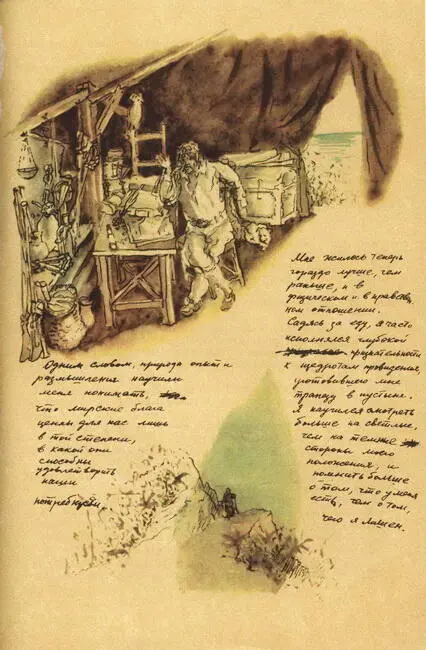 Одним словом, природа опыт и
размышления научили
меня понимать,
что мирские блага
ценны для нас лишь
в той степени,
в какой они
способны
удовлетворять
наши
потребности.
Мне жилось теперь
гораздо лучше, чем
раньше, и в
физическом и в нравствен
ном отношении.
Садясь за еду, я часто
исполнялся глубокой
признательности
к щедротам провидения,
уготовившего мне
трапезу в пустыне.
Я научился смотреть
больше на светлые,
чем на темные
стороны моего
положения, и
помнить больше
о том, что у меня
есть, чем о том,
чего я лишен.